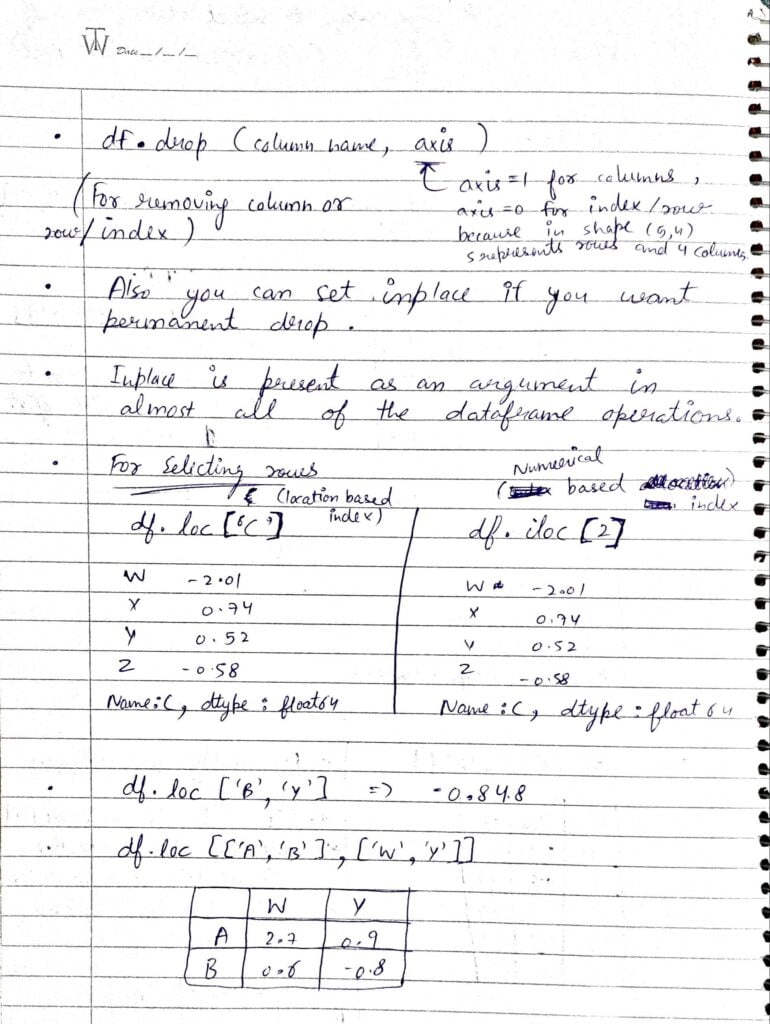 TW Date_/_/_
• df. drop (column name, axis)
axis=1 for columns,
axis=0 for index/row
because in shape (5,4)
5 represents rows and 4 columns.
(For removing column or
row/index)
• Also you can set inplace if you want
permanent drop.
• Inplace is present as an argument in
almost all of the dataframe operations.
• For Selecting rows
(location based
index)
Numerical
( based )
index
df. loc ['C']
df. iloc [2]
W -2.01
X 0.74
Y 0.52
Z -0.58
Name:C, dtype: float64
W -2.01
X 0.74
Y 0.52
Z -0.58
Name:C, dtype: float 64
• df. loc ['B', 'Y'] => -0.848
• df. loc [['A', 'B'], ['W', 'Y']]
W Y
A 2.7 0.9
B 0.6 -0.8